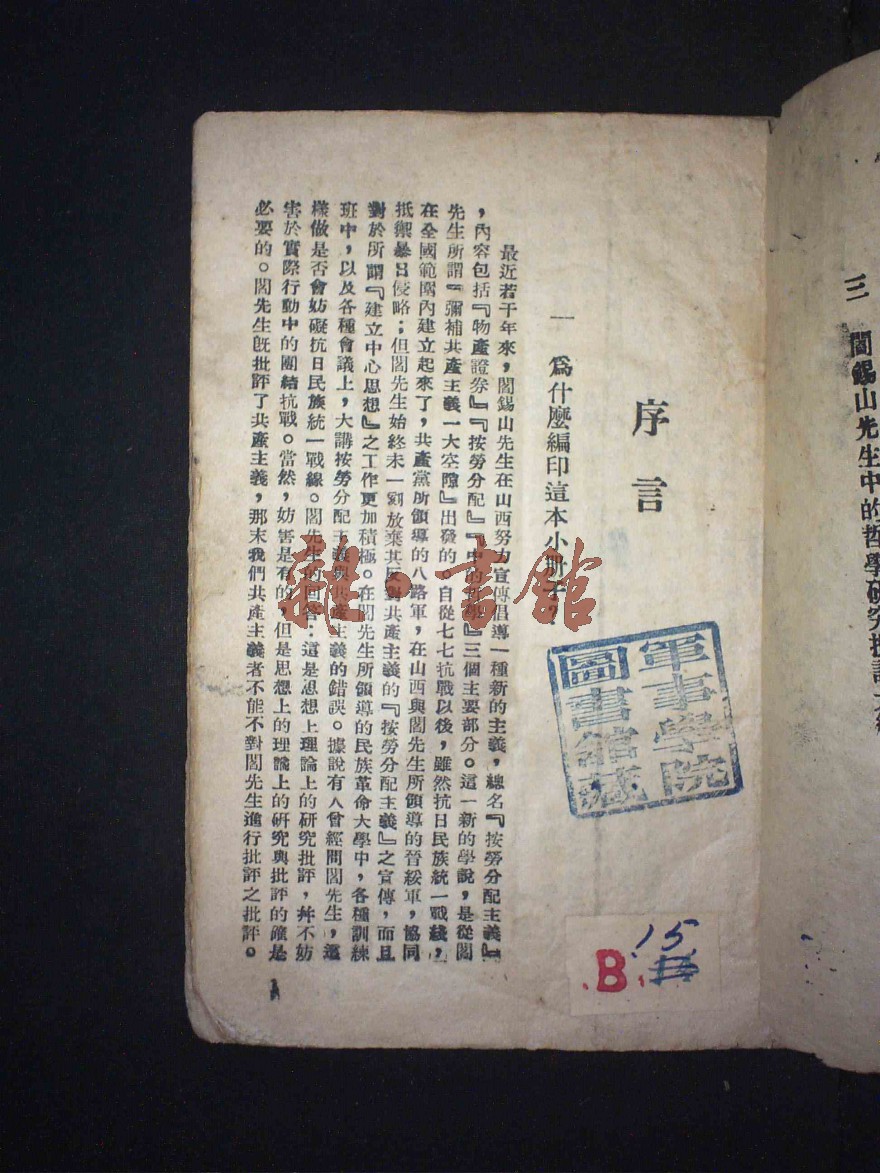 序言
一 爲什麼編印這本小册子？
最近若干年來，閻錫山先生在山西努力宣傳倡導一種新的主義，總名『按勞分配主義』
，內容包括『物產證券』『按勞分配』『中的哲學』三個主要部分。這一新的學說，是從閻
先生所謂『彌補共產主義一大空隙』出發的。自從七七抗戰以後，雖然抗日民族統一戰綫，
在全國範圍內建立起來了，共產黨所領導的八路軍，在山西與閻先生所領導的晉綏軍，協同
抵禦暴日侵略；但閻先生始終未一刻放棄其反對共產主義的『按勞分配主義』之宣傳，而且
對於所謂『建立中心思想』之工作更加積極。在閻先生所領導的民族革命大學中，各種訓練
班中，以及各種會議上，大講按勞分配主義與共產主義的錯誤。據說有人曾經問閻先生，這
樣做是否會妨礙抗日民族統一戰線。閻先生的回答：這是思想上理論上的研究批評，並不妨
害於實際行動中的團結抗戰。當然，妨害是有的，但是思想上的理論上的研究與批評的確是
必要的。閻先生旣批評了共產主義，那末我們共產主義者不能不對閻先生進行批評之批評。
軍事學院
圖書館藏
B.15
雜·書館
三 閻錫山先生中的哲學研究